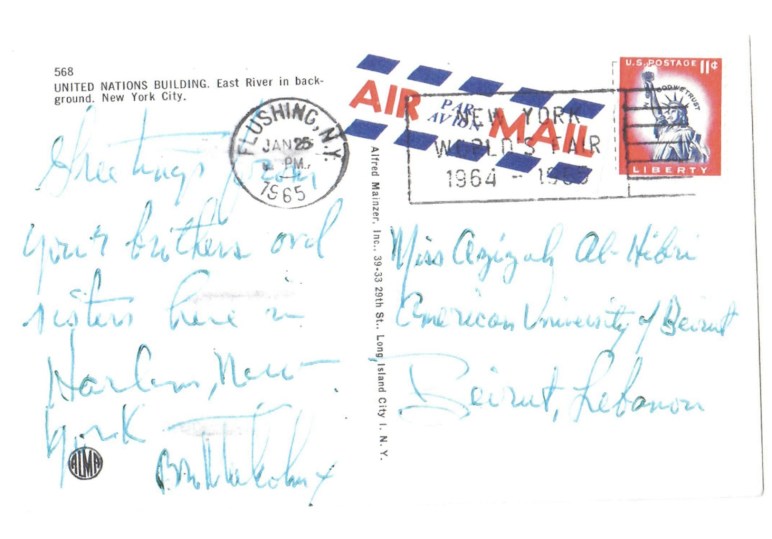 568
UNITED NATIONS BUILDING. East River in back-
ground. New York City.
Greetings from
your brothers and
sisters here in
Harlem, New
York
Bro. Malcolm X
ALMA
FLUSHING, N.Y.
JAN 25
PM
1965
AIR MAIL
PAR
AVION
NEW YORK
WORLD'S FAIR
1964 - 1965
U.S. POSTAGE 11¢
IN GOD WE TRUST
LIBERTY
Alfred Mainzer, Inc., 39-33 29th St., Long Island City 1, N. Y.
Miss Azizah Al-Hibri
American University of Beirut
Beirut, Lebanon